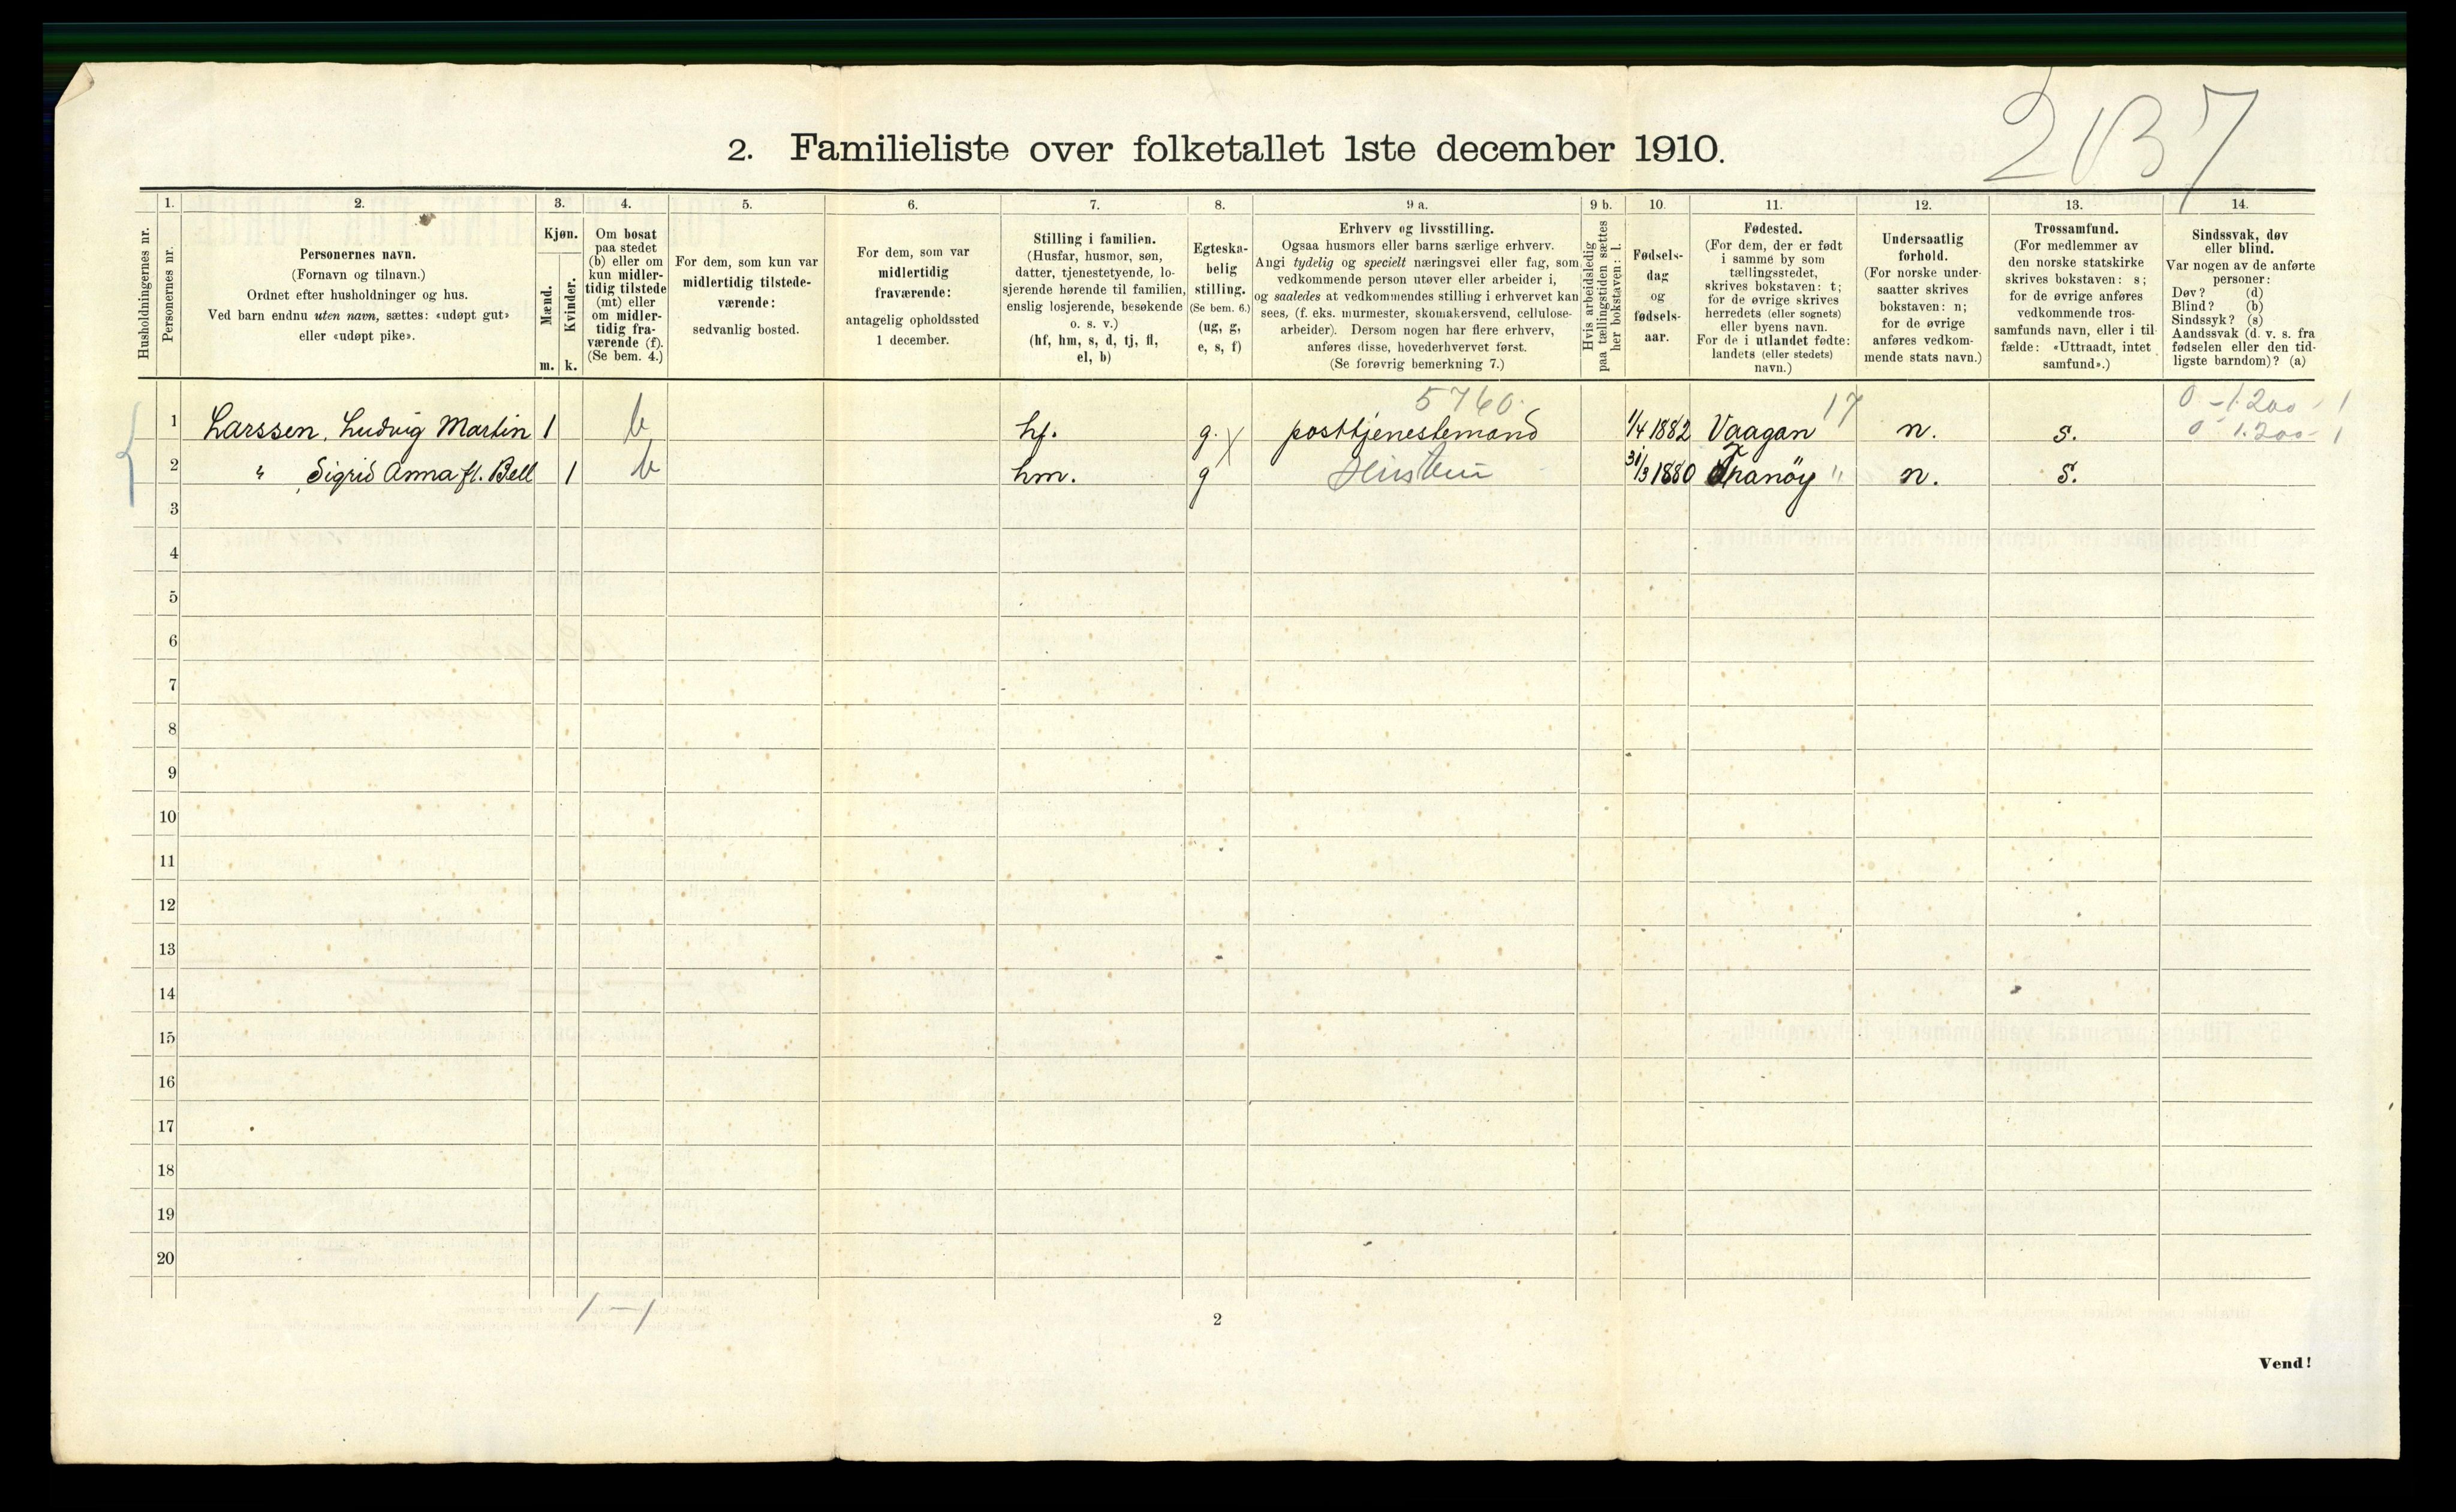 237
2. Familieliste over folketallet 1ste december 1910.
Husholdningernes nr.
1.
Personernes nr.
2.
Personernes navn.
(Fornavn og tilnavn.)
Ordnet efter husholdninger og hus.
Ved barn endnu uten navn, sættes: «udøpt gut»
eller «udøpt pike».
3.
Kjøn.
Mænd.
Kvinder.
m.
k.
4.
Om bosat
paa stedet
(b) eller om
kun midler-
tidig tilstede
(mt) eller
om midler-
tidig fra-
værende (f).
(Se bem. 4.)
5.
For dem, som kun var
midlertidig tilstede-
værende:
sedvanlig bosted.
6.
For dem, som var
midlertidig
fraværende:
antagelig opholdssted
1 december.
7.
Stilling i familien.
(Husfar, husmor, søn,
datter, tjenestetyende, lo-
sjerende hørende til familien,
enslig losjerende, besøkende
o. s. v.)
(hf, hm, s, d, tj, fl,
el, b)
8.
Egteska-
belig
stilling.
(Se bem. 6.)
(ug, g,
e, s, f)
9 a.
Erhverv og livsstilling.
Ogsaa husmors eller barns særlige erhverv.
Angi tydelig og specielt næringsvei eller fag, som
vedkommende person utøver eller arbeider i,
og saaledes at vedkommendes stilling i erhvervet kan
sees, (f. eks. murmester, skomakersvend, cellulose-
arbeider). Dersom nogen har flere erhverv,
anføres disse, hovederhvervet først.
(Se forøvrig bemerkning 7.)
9 b.
Hvis arbeidsledig
paa tællingstiden sættes
her bokstaven: l.
10.
Fødsels-
dag
og
fødsels-
aar.
11.
Fødested.
(For dem, der er født
i samme by som
tællingsstedet,
skrives bokstaven: t;
for de øvrige skrives
herredets (eller sognets)
eller byens navn.
For de i utlandet fødte:
landets (eller stedets)
navn.)
12.
Undersaatlig
forhold.
(For norske under-
saatter skrives
bokstaven: n;
for de øvrige
anføres vedkom-
mende stats navn.)
13.
Trossamfund.
(For medlemmer av
den norske statskirke
skrives bokstaven: s;
for de øvrige anføres
vedkommende tros-
samfunds navn, eller i til-
fælde: «Uttraadt, intet
samfund».)
14.
Sindssvak, døv
eller blind.
Var nogen av de anførte
personer:
Døv? (d)
Blind? (b)
Sindssyk? (s)
Aandssvak (d. v. s. fra
fødselen eller den tid-
ligste barndom)? (a)
5760. 17 0 - 1.200 - 1
1 Larssen, Ludvig Martin 1 b hf. g. posttjenestemand 1/4 1882 Vaagan n. s. 0 - 1.200 - 1
2 " Sigrid Anna f. Bell 1 b hm. g 31/3 1880 Tranöy " n. s.
3
4
5
6
7
8
9
10
11
12
13
14
15
16
17
18
19
20
1 — 1
2
Vend!